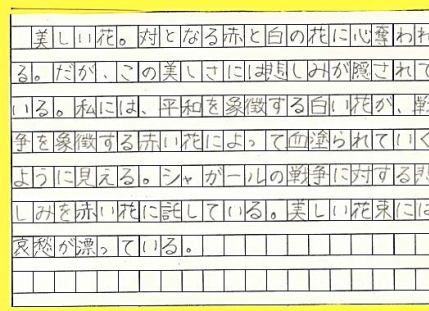 美しい花。対となる赤と白の花に心奪われ
る。だが、この美しさには悲しみが隠されて
いる。私には、平和を象徴する白い花が、戦
争を象徴する赤い花によって血塗られていく
ように見える。シャガールの戦争に対する悲
しみを赤い花に託している。美しい花束には
哀愁が漂っている。